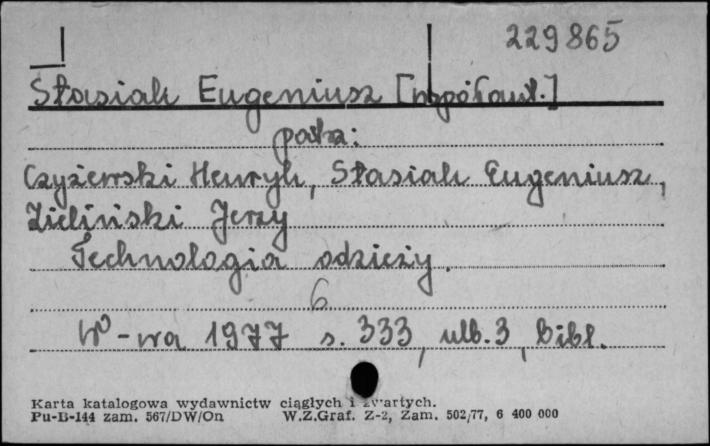 229865
Stasiak Eugeniusz [współaut.]
patrz:
Czyżewski Henryk, Stasiak Eugeniusz,
Zieliński Jerzy
Technologia odzieży.
6
W-wa 1977 s. 333, ulb. 3, bibl.
Karta katalogowa wydawnictw ciągłych i zwartych.
Pu-B-144 zam. 567/DW/On W.Z.Graf. Z-2, Zam. 502/77, 6 400 000